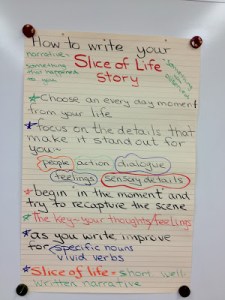 How to write your
narrative=
something
that happened
to you.
Slice of Life
story
Choose an every day moment
from your life
focus on the details that
make it stand out for
you-
people action dialogue
feelings sensory details
begin 'in the moment' and
try to recapture the scene.
The key=your thoughts/feelings
as you write improve
for specific nouns
vivid verbs
Slice of life= short well-
written narrative